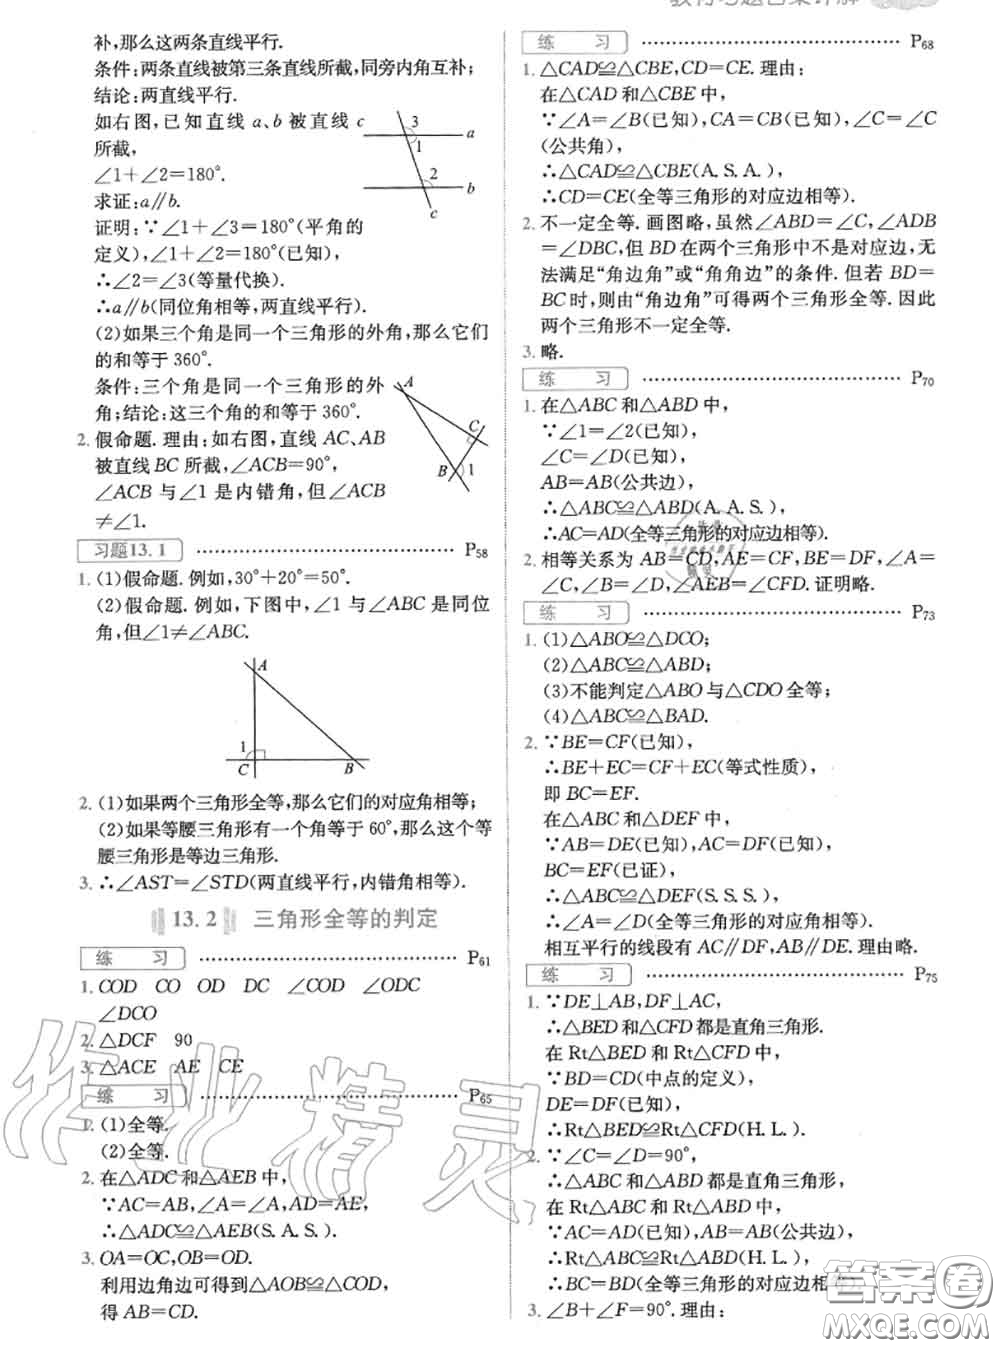 补,那么这两条直线平行.
条件:两条直线被第三条直线所截,同旁内角互补;
结论:两直线平行.
如右图,已知直线 a、b 被直线 c
所截,
∠1+∠2=180°.
求证:a∥b.
证明:∵∠1+∠3=180°(平角的
定义),∠1+∠2=180°(已知),
∴∠2=∠3(等量代换).
∴a∥b(同位角相等,两直线平行).
(2)如果三个角是同一个三角形的外角,那么它们
的和等于360°.
条件:三个角是同一个三角形的外
角;结论:这三个角的和等于360°.
2. 假命题. 理由:如右图,直线 AC、AB
被直线 BC 所截,∠ACB=90°,
∠ACB 与∠1 是内错角,但∠ACB
≠∠1.
3
a
1
2
b
c
A
C
B
1
习题13.1 P58
1. (1)假命题. 例如,30°+20°=50°.
(2)假命题. 例如,下图中,∠1 与∠ABC 是同位
角,但∠1≠∠ABC.
A
1
C
B
2. (1)如果两个三角形全等,那么它们的对应角相等;
(2)如果等腰三角形有一个角等于 60°,那么这个等
腰三角形是等边三角形.
3. ∴∠AST=∠STD(两直线平行,内错角相等).
13.2 三角形全等的判定
练 习 P61
1. COD CO OD DC ∠COD ∠ODC
∠DCO
2. △DCF 90
3. △ACE AE CE
练 习 P65
1. (1)全等.
(2)全等.
2. 在△ADC 和△AEB 中,
∵AC=AB,∠A=∠A,AD=AE,
∴△ADC≌△AEB(S.A.S.).
3. OA=OC,OB=OD.
利用边角边可得到△AOB≌△COD,
得 AB=CD.
练 习 P68
1. △CAD≌△CBE,CD=CE. 理由:
在△CAD 和△CBE 中,
∵∠A=∠B(已知),CA=CB(已知),∠C=∠C
(公共角),
∴△CAD≌△CBE(A.S.A.),
∴CD=CE(全等三角形的对应边相等).
2. 不一定全等. 画图略,虽然∠ABD=∠C,∠ADB
=∠DBC,但 BD 在两个三角形中不是对应边,无
法满足“角边角”或“角角边”的条件. 但若 BD=
BC 时,则由“角边角”可得两个三角形全等. 因此
两个三角形不一定全等.
3. 略.
练 习 P70
1. 在△ABC 和△ABD 中,
∵∠1=∠2(已知),
∠C=∠D(已知),
AB=AB(公共边),
∴△ABC≌△ABD(A.A.S.),
∴AC=AD(全等三角形的对应边相等).
2. 相等关系为 AB=CD,AE=CF,BE=DF,∠A=
∠C,∠B=∠D,∠AEB=∠CFD. 证明略.
练 习 P73
1. (1)△ABO≌△DCO;
(2)△ABC≌△ABD;
(3)不能判定△ABO 与△CDO 全等;
(4)△ABC≌△BAD.
2. ∵BE=CF(已知),
∴BE+EC=CF+EC(等式性质),
即 BC=EF.
在△ABC 和△DEF 中,
∵AB=DE(已知),AC=DF(已知),
BC=EF(已证),
∴△ABC≌△DEF(S.S.S.),
∴∠A=∠D(全等三角形的对应角相等).
相互平行的线段有 AC∥DF,AB∥DE. 理由略.
练 习 P75
1. ∵DE⊥AB,DF⊥AC,
∴△BED 和△CFD 都是直角三角形.
在 Rt△BED 和 Rt△CFD 中,
∵BD=CD(中点的定义),
DE=DF(已知),
∴Rt△BED≌Rt△CFD(H.L.).
2. ∵∠C=∠D=90°,
∴△ABC 和△ABD 都是直角三角形,
在 Rt△ABC 和 Rt△ABD 中,
∵AC=AD(已知),AB=AB(公共边),
∴Rt△ABC≌Rt△ABD(H.L.),
∴BC=BD(全等三角形的对应边相
3. ∠B+∠F=90°. 理由:
作业精灵
答案圈
MXQE.COM